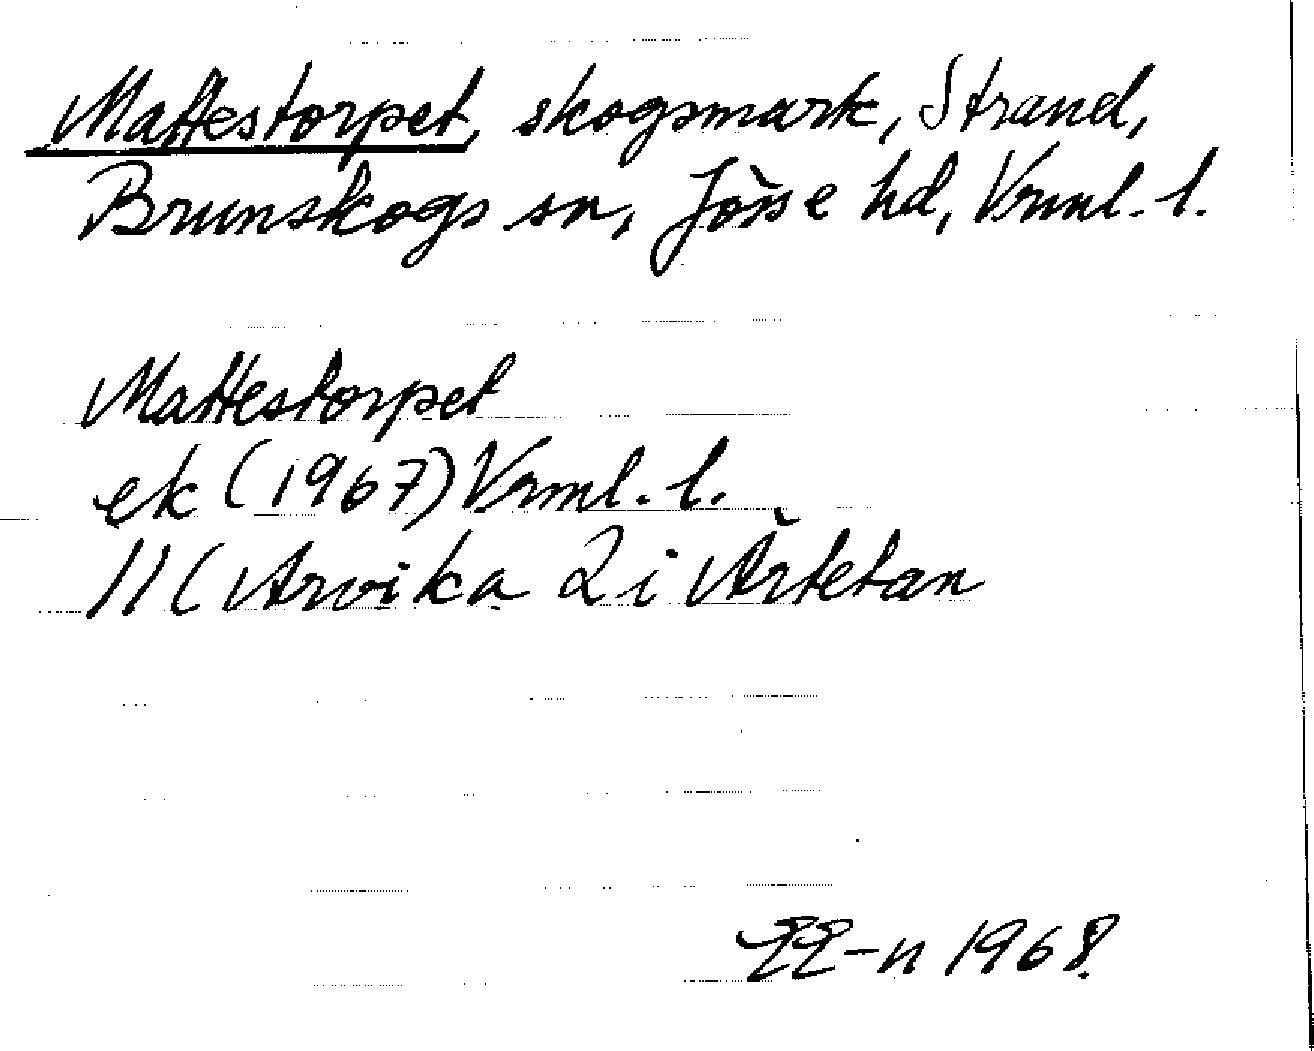 Mattestorpet, skogsmark, Strand,
Brunskogs sn, Jösse hd, Vrml. l.
Mattestorpet
ek (1967) Vrml. l.
11C Arvika 2i Ärtetan
EE-n 1968